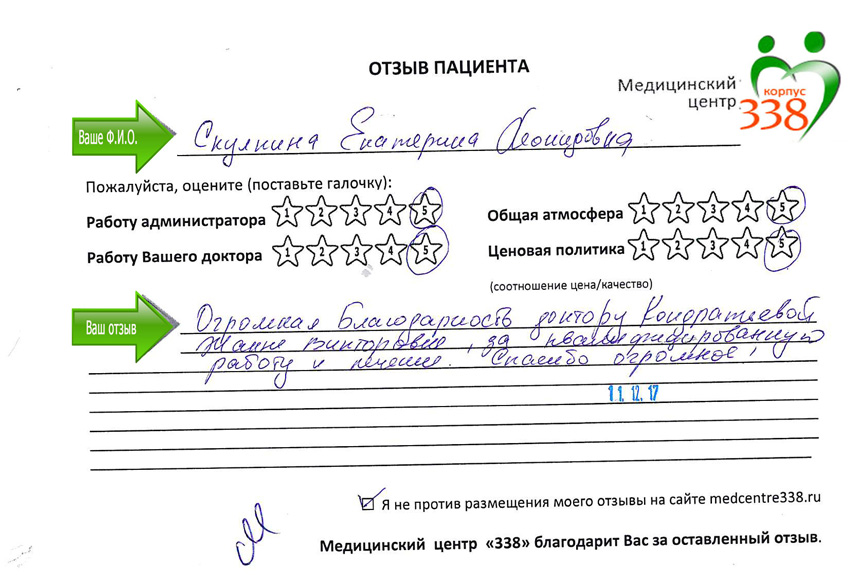 ОТЗЫВ ПАЦИЕНТА
Медицинский
центр
корпус
338
Ваше Ф.И.О.
Скулкина Екатерина Леонидовна
Пожалуйста, оцените (поставьте галочку):
Работу администратора 1 2 3 4 5
Общая атмосфера 1 2 3 4 5
Работу Вашего доктора 1 2 3 4 5
Ценовая политика 1 2 3 4 5
(соотношение цена/качество)
Ваш отзыв
Огромная Благодарность доктору Кондратьевой
Жанне Викторовне, за квалифицированную
работу и лечение. Спасибо огромное!
11.12.17
Я не против размещения моего отзывы на сайте medcentre338.ru
Медицинский центр «338» благодарит Вас за оставленный отзыв.